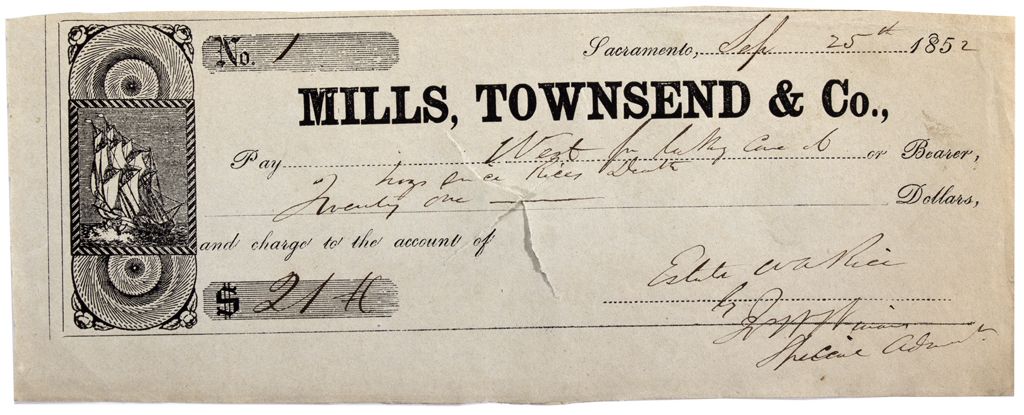 No. 1
Sacramento, Sep 25th 1852
MILLS, TOWNSEND & Co.,
Pay West for taking care of or Bearer,
hogs since Rices Death
Twenty one Dollars,
and charge to the account of
$ 21
Estate Rice
by
Special Adm